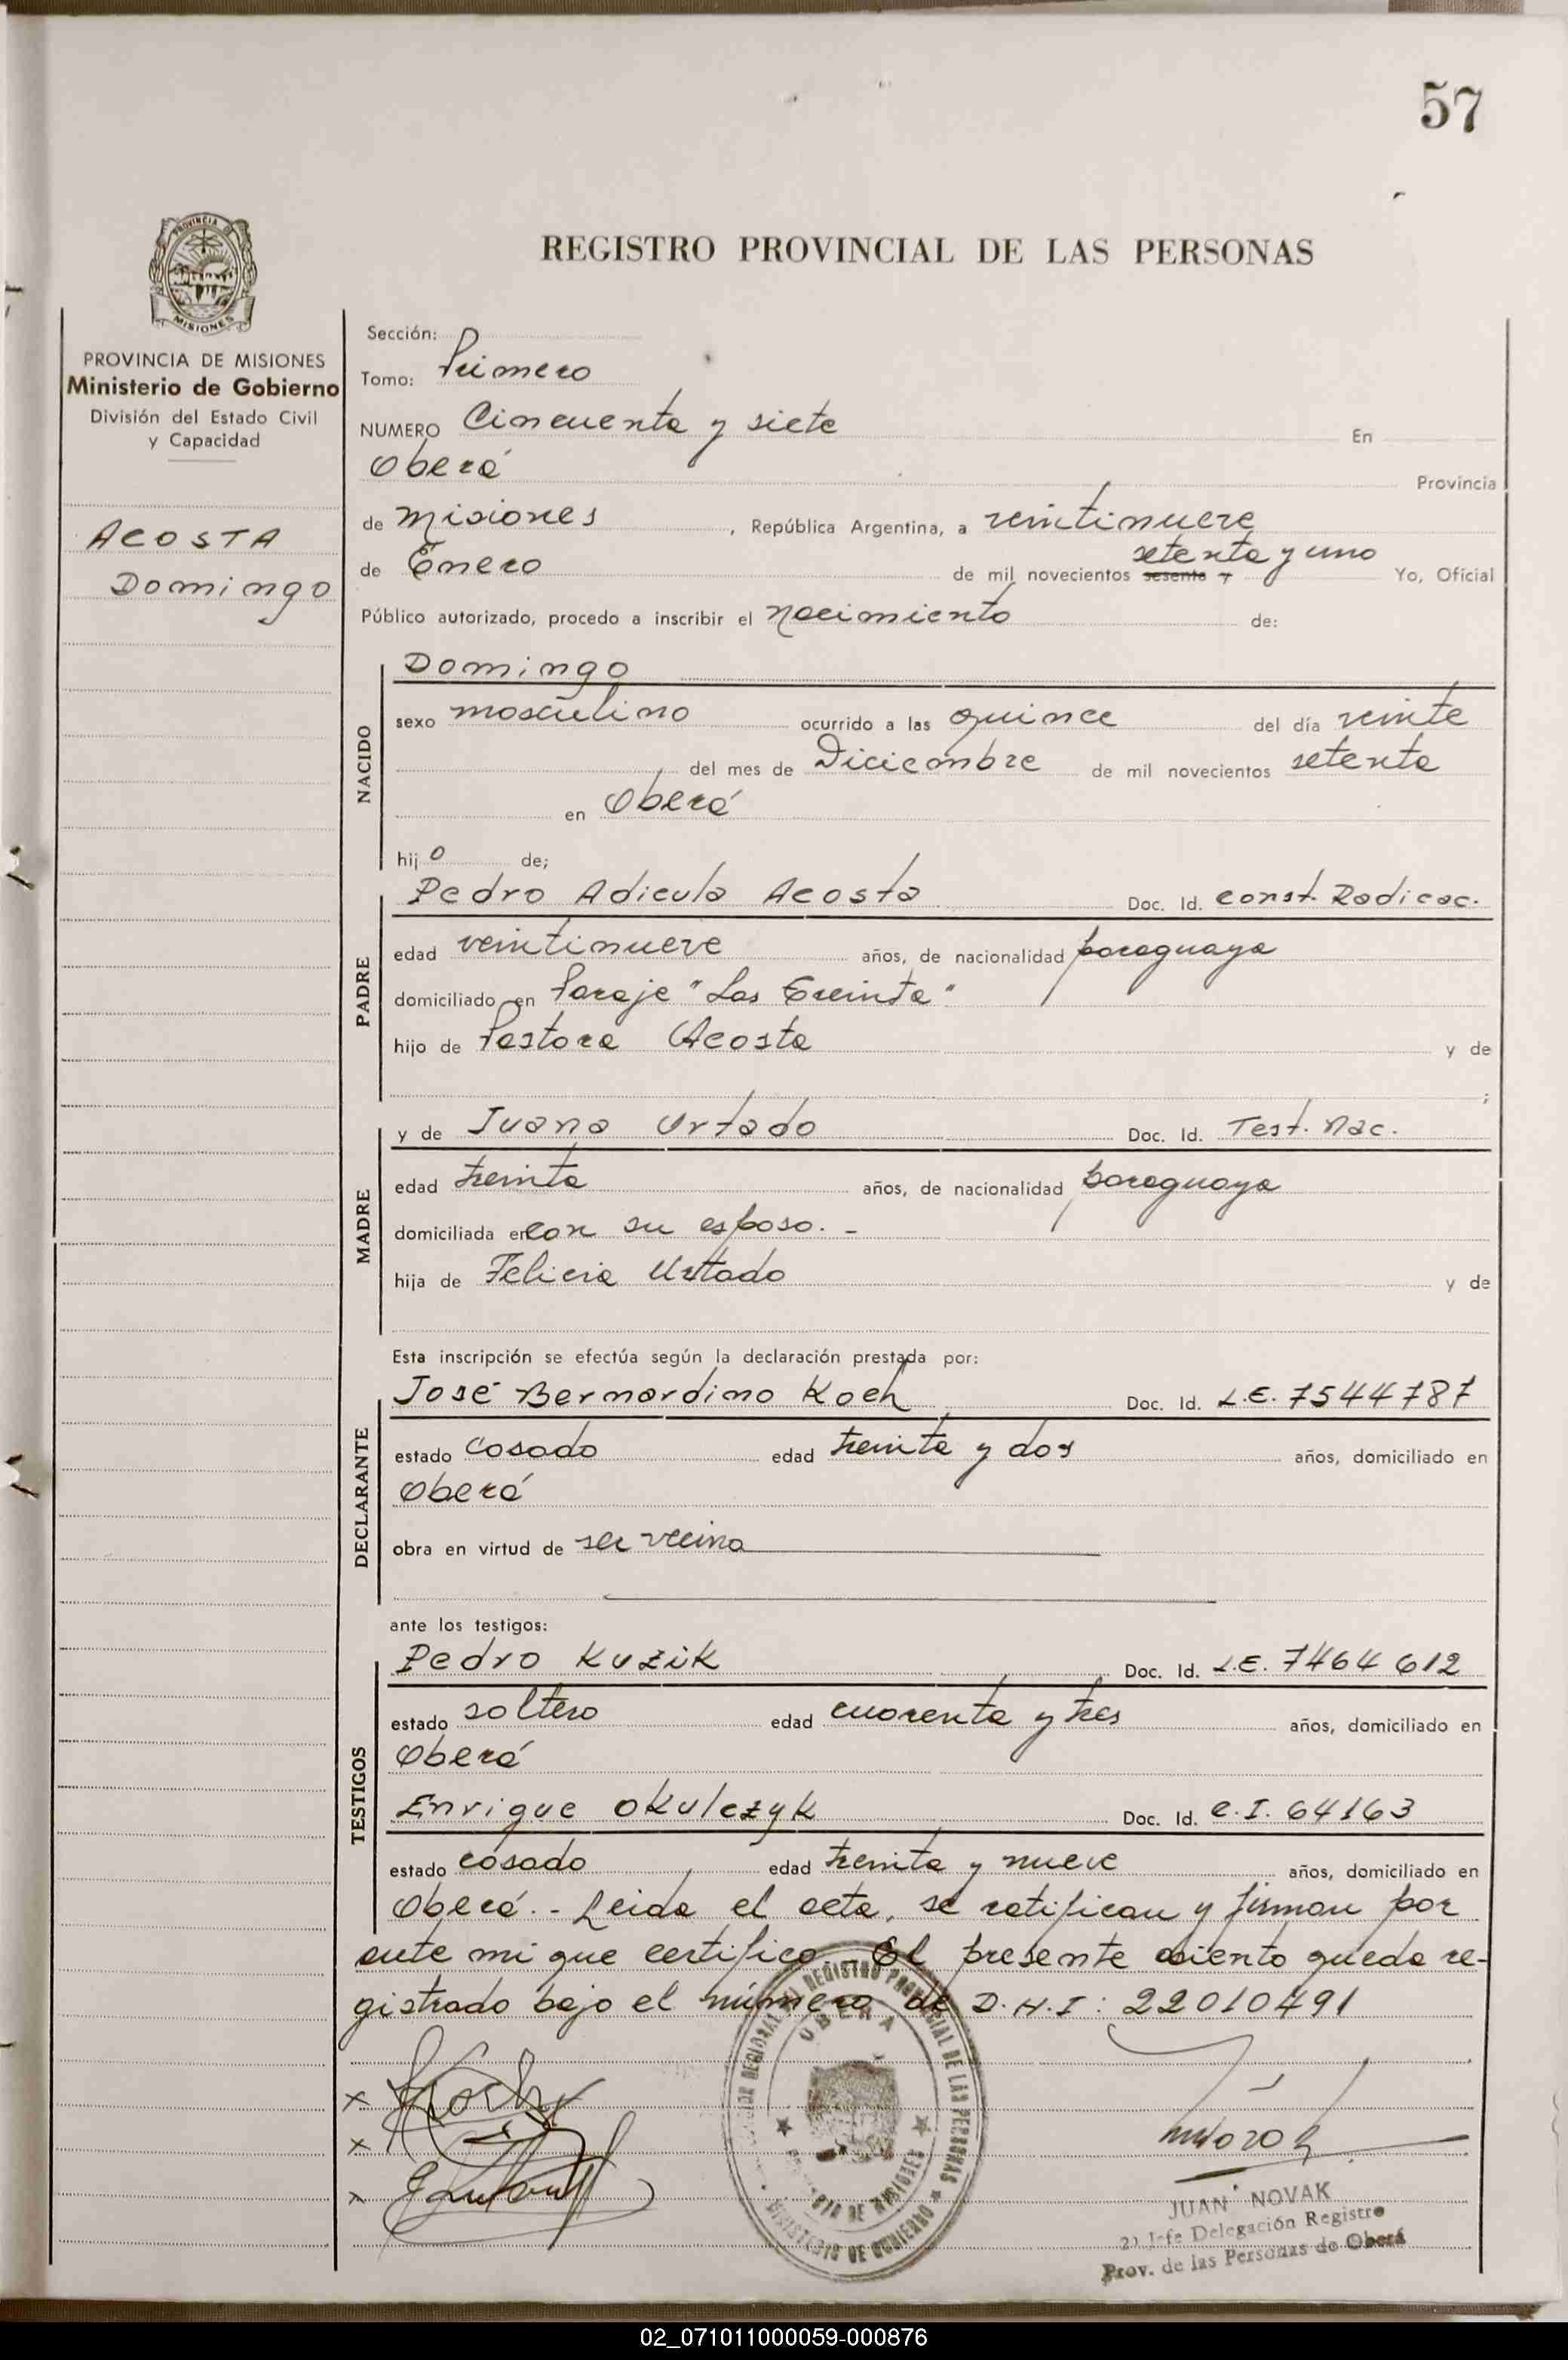 57
PROVINCIA DE
MISIONES
REGISTRO PROVINCIAL DE LAS PERSONAS
PROVINCIA DE MISIONES
Ministerio de Gobierno
División del Estado Civil
y Capacidad
ACOSTA
Domingo
Sección:
Tomo: Primero
NUMERO Cincuenta y siete En
Oberá Provincia
de Misiones, República Argentina, a veintinueve
setenta y uno
de Enero de mil novecientos sesenta y Yo, Oficial
Público autorizado, procedo a inscribir el nacimiento de:
NACIDO
Domingo
sexo masculino ocurrido a las quince del día veinte
del mes de Diciembre de mil novecientos setenta
en Oberá
hijo de;
PADRE
Pedro Adicula Acosta Doc. Id. const. Radicac.
edad veintinueve años, de nacionalidad paraguaya
domiciliado en Paraje "Los Treinta"
hijo de Pastora Acosta y de
;
MADRE
y de Juana Urtado Doc. Id. Test. Nac.
edad treinta años, de nacionalidad paraguaya
domiciliada en con su esposo. -
hija de Felicia Urtado y de
Esta inscripción se efectúa según la declaración prestada por:
DECLARANTE
José Bernardino Koch Doc. Id. L.E. 7544787
estado casado edad treinta y dos años, domiciliado en
Oberá
obra en virtud de ser vecino
ante los testigos:
TESTIGOS
Pedro Kuzik Doc. Id. L.E. 7464612
estado soltero edad cuarenta y tres años, domiciliado en
Oberá
Enrique Okulczyk Doc. Id. C.I. 64163
estado casado edad treinta y nueve años, domiciliado en
Oberá. - Leida el acta, se ratifican y firman por
ante mi que certifico. El presente asiento queda re-
gistrado bajo el número de D.N.I: 22010491
REGISTRO PROVINCIAL DE LAS PERSONAS
OBERA
MINISTERIO DE GOBIERNO
JUAN NOVAK
2) Jefe Delegación Registro
Prov. de las Personas de Oberá
02_071011000059-000876